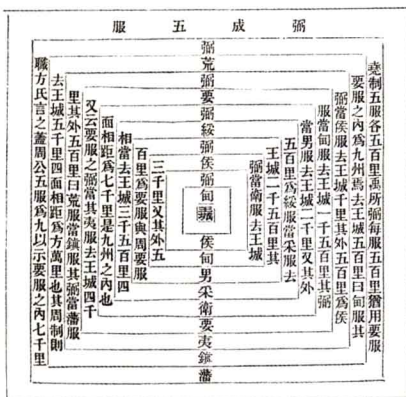 弼成五服
堯制五服各五百里禹所弼每服五百里猶用要服
要服之內爲九州焉去王城五百里曰甸服其
弼當侯服去王城千里其外五百里爲侯
服當甸服去王城一千五百里其弼
當男服去王城二千里又其外
五百里爲綏服當采服去
王城一千五百里其
弼當衛服去王城
弼荒弼要弼綏弼侯弼甸
侯甸男采衛要夷鎮藩
三千里又其外五
百里爲要服與周要服
相當去王城三千五百里四
面相距爲七千里是九州之內也
又云要服之弼當其夷服去王城四千
里其外五百里曰荒服當鎮服其弼當藩服
去王城五千里四面相距爲方萬里也其周制則
職方氏言之蓋周公五服爲九以示要服之內七千里